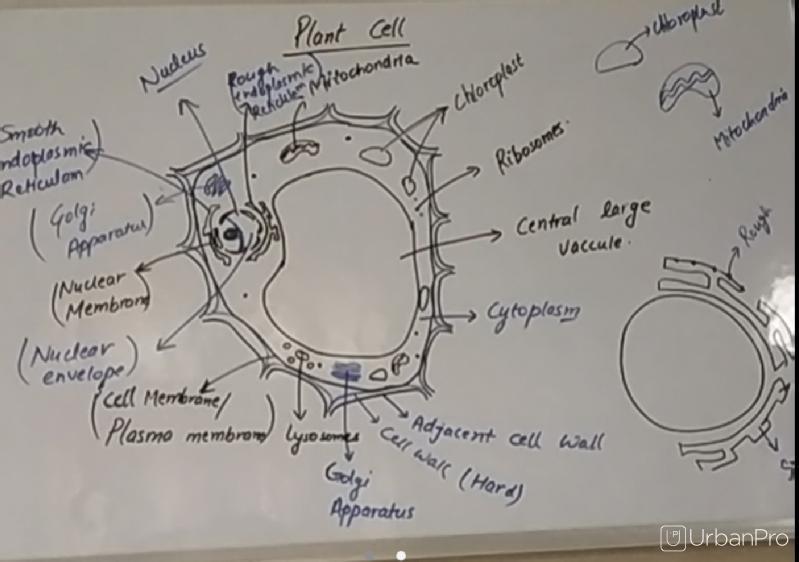 Plant Cell
Nucleus
Rough
endoplasmic
Reticulum
Mitochondria
Chloroplast
chloroplast
Mitochondria
Smooth
ndoplasmic
Reticulum
Ribosomes.
(Golgi
Apparatus)
Central large
vaccule.
Rough
(Nuclear
Membran
Cytoplasm
(Nuclear
envelope)
(Cell Membrane/
Plasma membrane)
Lysosomes
Adjacent cell wall
Cell wall (Hard)
Golgi
Apparatus
UrbanPro